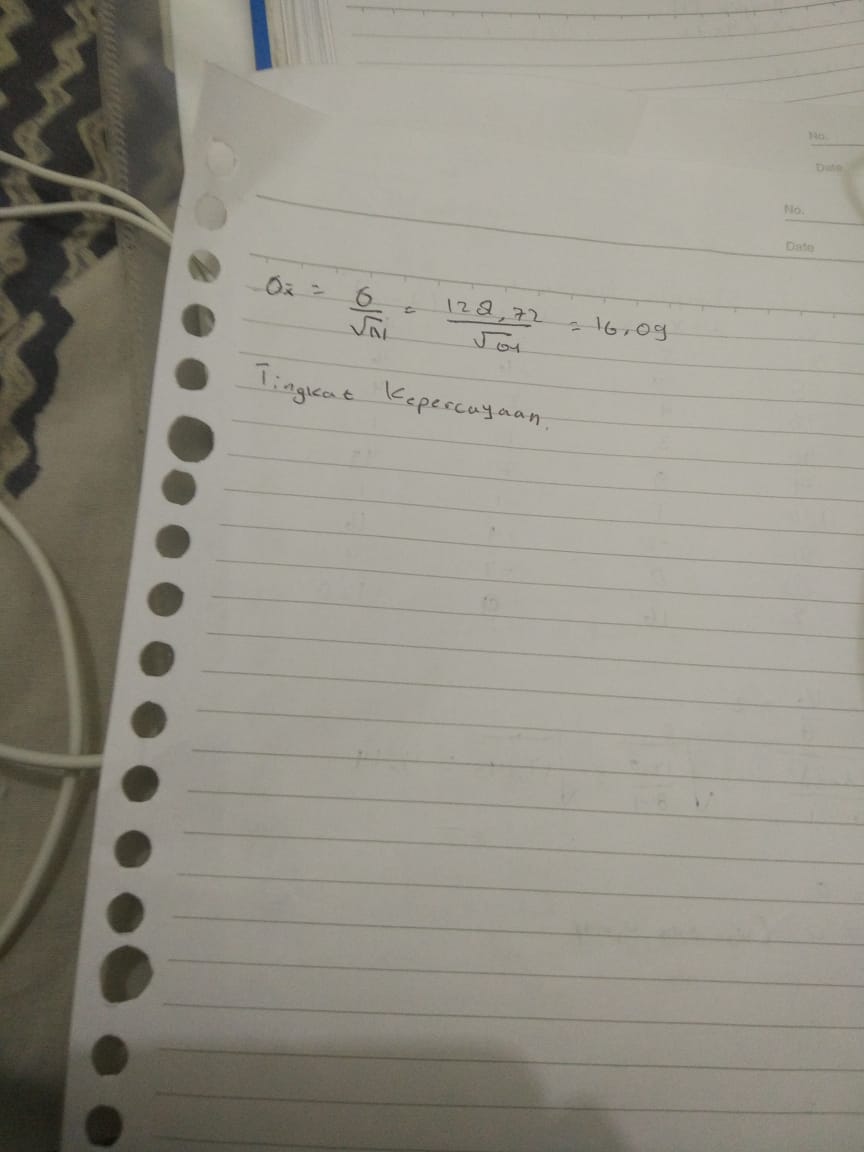 No.
Date
No.
Date
σx̄ = σ/√N = 128,72/√64 = 16,09
Tingkat Kepercayaan.